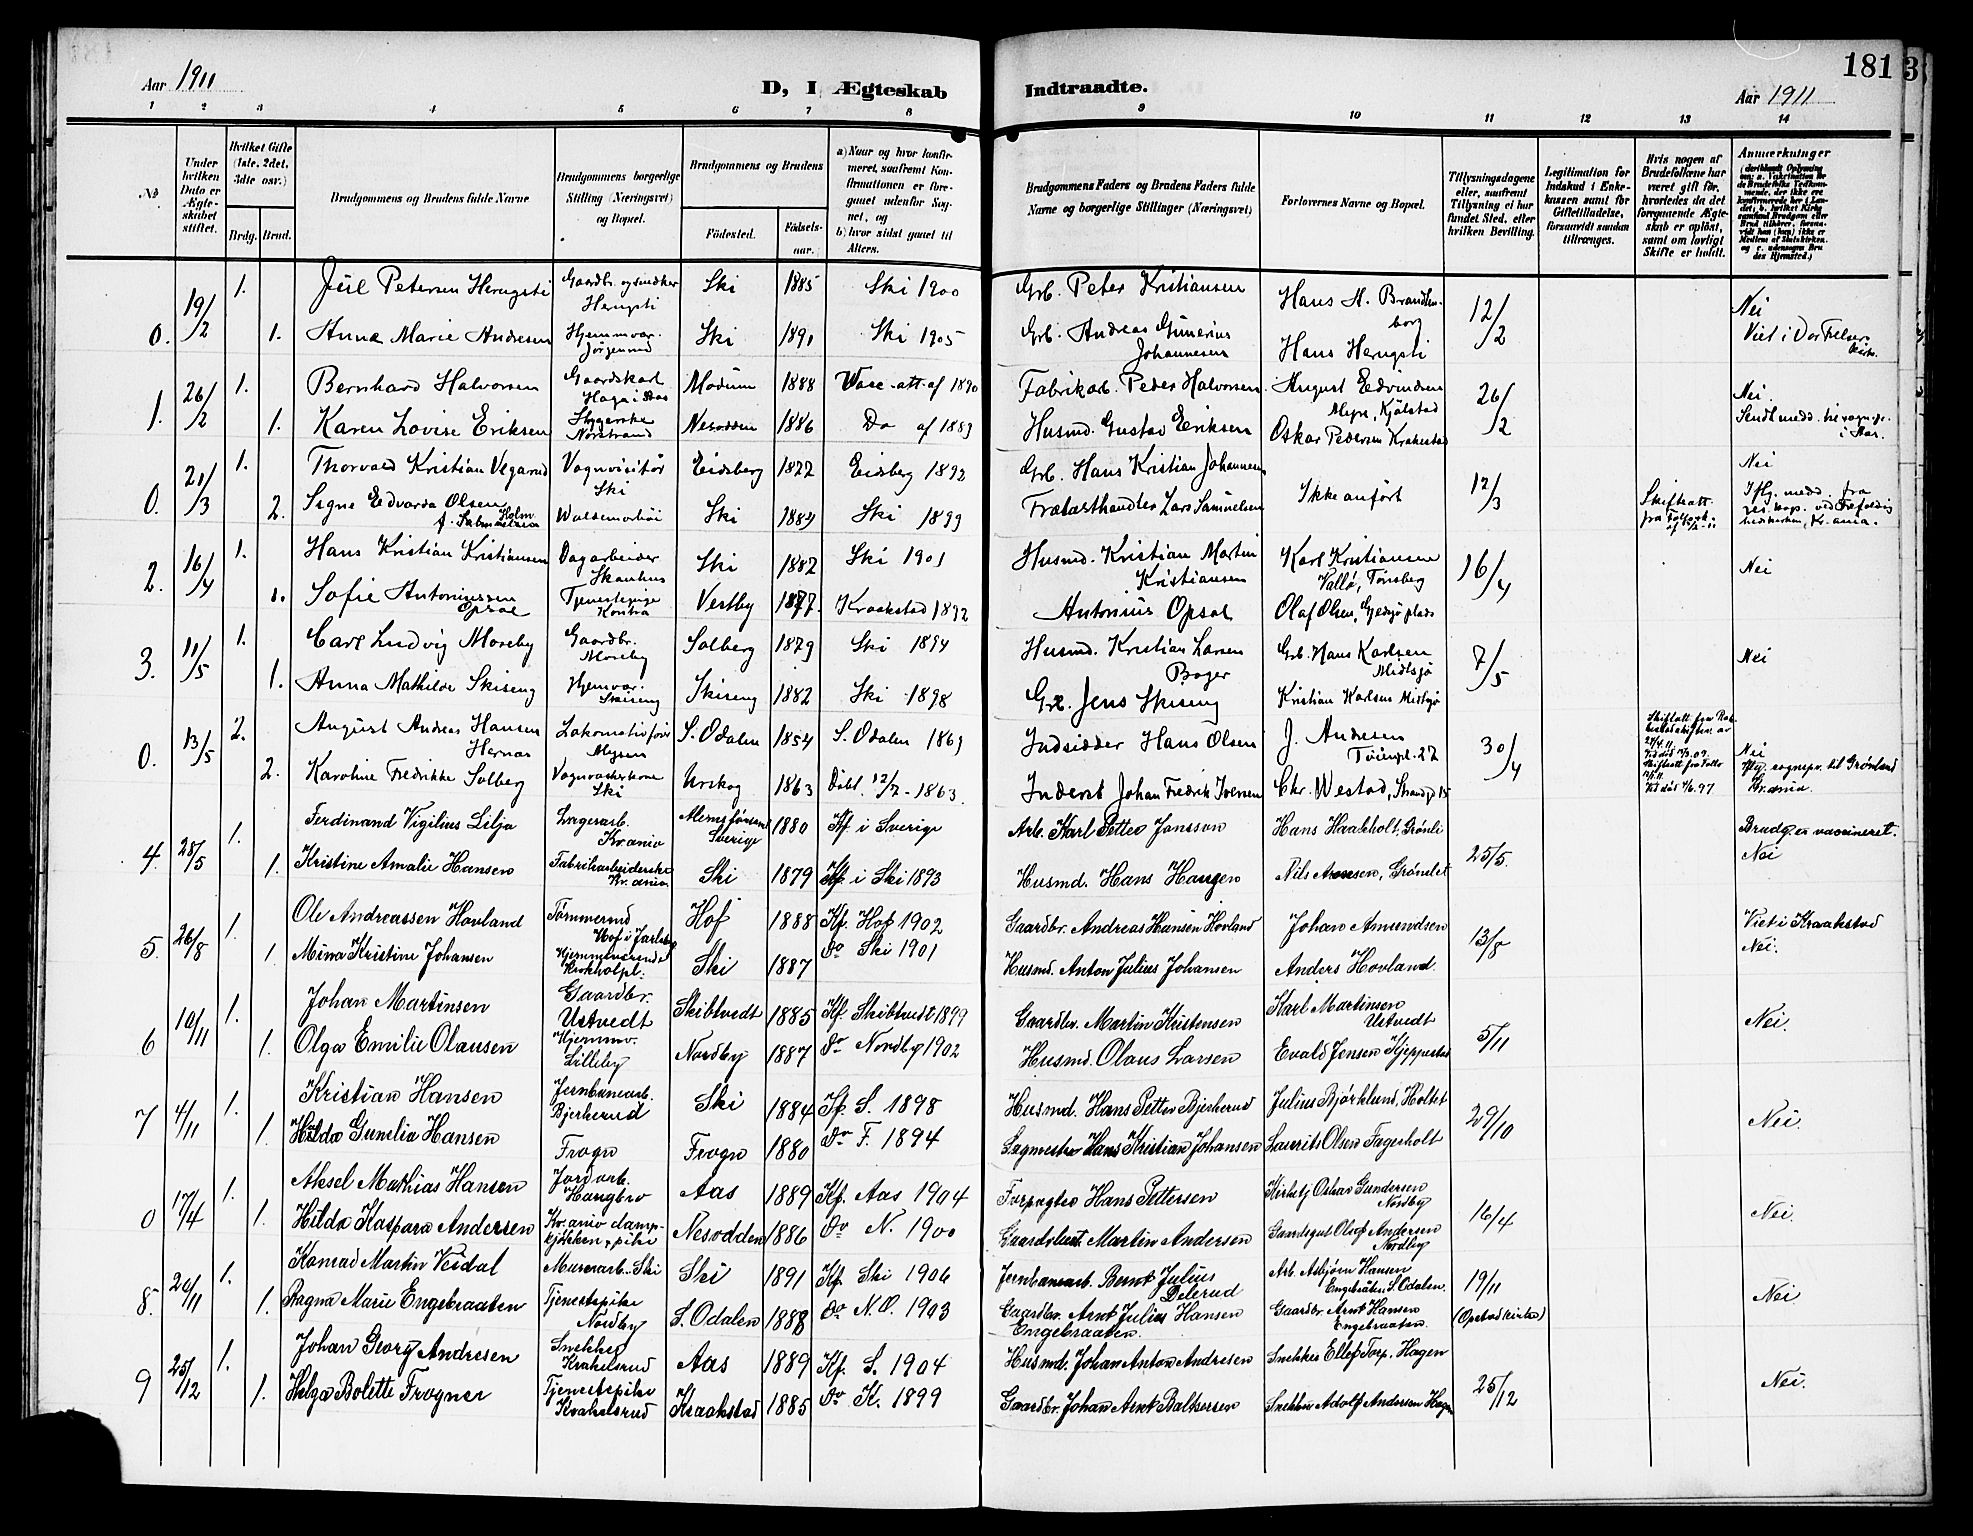 181
3
Aar 1911
D, I Ægteskab
Indtraadte.
Aar 1911
1 2 3 4 5 6 7 8 9 10 11 12 13 14
No.
Under hvilken Dato er Ægteskabet stiftet.
Hvilket Gifte (1ste, 2det, 3die osv.)
Brdg. Brud.
Brudgommens og Brudens fulde Navne.
Brudgommens borgerlige Stilling (Næringsvei) og Bopæl.
Brudgommens og Brudens
Fødested.
Fødselsaar.
a) Naar og hvor konfirmeret, saafremt Konfirmationen er foregaaet udenfor Sognet, og
b) hvor sidst gaaet til Alters.
Brudgommens Faders og Brudens Faders fulde Navne og borgerlige Stillinger (Næringsvei)
Forlovernes Navne og Bopæl.
Tillysningsdagene eller, saafremt Tillysning ei har fundet Sted, efter hvilken Bevilling.
Legitimation for Indskud i Enkekassen samt for Giftetilladelse, forsaavidt saadan tiltrænges.
Hvis nogen af Brudefolkene har været gift før, hvorledes da det foregaaende Ægteskab er opløst, samt om lovligt Skifte er holdt.
Anmerkninger
0. 19/2 1. Juil Petersen Herugsti Gaardbr. og snedker Herugsti Ski 1885 Ski 1900 Grb. Peter Kristiansen Hans H. Brandenborg 12/2 Nei
1. Anna Marie Andresen Hjemmvær. Jørgenrud Ski 1891 Ski 1905 Grb. Andreas Gunerius Johannesen Hans Herugsti Viet i
1. 26/2 1. Bernhard Halvorsen Gaardskarl Haga i Aas Modum 1888 Vase-att. af 1890 Fabrikarb. Peder Halvorsen August Edvindsen Kjølstad 26/2 Nei.
1. Karen Lovise Eriksen Nordstrand Nesodden 1886 Do af 1889 Husmd. Gustav Eriksen Oskar Pedersen Krakestad Sendt medd. i Aas.
0. 21/3 1. Thorvald Kristian Vegarud Vognvisitør Ski Eidsberg 1877 Eidsberg 1892 Grb. Hans Kristian Johannesen Ikke anført 12/3 Nei
2. Signe Edvarda Olsen f. Holm Waldemarhøi Ski 1884 Ski 1899 Trælasthandler Lars Samuelsen Skifteatt. Iflg. medd. fra res. kap. ved Trefoldighedskirken, Kr.ania.
2. 16/4 1. Hans Kristian Kristiansen Dagarbeider Skauhus Ski 1882 Ski 1901 Husmd. Kristian Martin Kristiansen Karl Kristiansen Vallø, Tønsberg 16/4 Nei
1. Sofie Antoniussen Opsal Tjenestepige Kontra Vestby 1877. Kraakstad 1892 Antonius Opsal Olaf Olsen, Gjedsjø plads
3. 11/5 1. Carl Ludvig Moseby Gaardbr. Moseby Solberg 1879 Ski 1894 Husmd. Kristian Larsen Bøger Grb. Hans Karlsen Midtsjø 7/5 Nei
1. Anna Mathilde Skiseng Hjemvær. Skiseng Skiseng 1882 Ski 1898 Grb. Jens Skiseng Kristian Karlsen Midtsjø
0. 13/5 2. August Andreas Hansen Hernæs Lokomotivfører Mysen S. Odalen 1854 S. Odalen 1869 Indsidder Hans Olsen J. Andresen 30/4 Nei
2. Karoline Fredrikke Solberg Vognvaskerkone Ski Urskog 1863 Døbt. 12/7-1863. Inderst Johan Fredrik Iversen Chr. Westad, Strandg. 15 Iflg. sognepr. til Grønland Kr.ania
4. 28/5 1. Ferdinand Vigilius Lilja Lagerarb. Kr.ania Sverige 1880 Kf. i Sverige Arb. Karl Petter Jansson Hans Haakholt, Grønli 25/5. Brudg. er vaccineret.
1. Kristine Amalie Hansen Fabrikarbeiderske Kr.ania Ski 1879 Kf. i Ski 1893 Husmd. Hans Haugen Nils Arnesen, Grønslet Nei
5. 26/8 1. Ole Andreassen Hovland Tømmermd Hof i Jarlsberg Hof 1888 Kf. Hof 1902 Gaardbr. Andreas Hansen Hovland Johan Amundsen 13/8 Viet i Kraakstad
1. Mina Kristine Johansen Hjemmeværende Kirkholpl. Ski 1887 do Ski 1901 Husmd. Anton Julius Johansen Anders Hovland. Nei.
6 10/11 1. Johan Martinsen Gaardbr. Ustvedt Skibtvedt 1885 Kf. Skibtvedt 1899 Gaardbr. Martin Kristensen Karl Martinsen Ustvedt 5/11 Nei.
1. Olga Emilie Olausen Hjemmv. Lilleby Nordby 1887 do Nordby 1902 Husmd. Olaus Larsen Evald Jensen Kjeppestad
7 4/11 1. Kristian Hansen Jernbanearb. Bjerkerud Ski 1884 Kf. S. 1898 Husmd. Hans Petter Bjerkerud Julius Bjørklund, Holtet 29/10 Nei.
1. Hilda Gunelia Hansen Frogn Frogn 1880 do F. 1894 Sagmester Hans Kristian Johansen Laurits Olsen Fagerholt
0 17/4 1. Aksel Mathias Hansen Jordarb. Haugbro Aas 1889 Kf. Aas 1904 Forpagter Hans Pettersen Kirketj Oskar Gundersen Nordby 16/4 Nei.
1. Hilda Kaspara Andersen Kr.ania dampkjøkken, pike Nesodden 1886 do N. 1900 Martin Andersen Gaardsgut Olaf Andersen Nordby
8. 20/11 1. Konrad Martin Veidal Murerarb. Ski Ski 1891 Kf. Ski 1906 Jernbanearb. Bernt Julius Delerud Arb. Asbjørn Hansen Engebråten S. Odalen. 19/11 Nei.
1. Ragna Marie Engebraaten Tjenestepike Nordby S. Odalen 1888 do N.O. 1903 Gaardbr. Arnt Julius Hansen Engebraaten. Gaardbr Arnt Hansen Engebraaten. (Opstad kirke)
9 25/12 1. Johan Georg Andresen Snekker Krakelsrud Aas 1889 Kf. S. 1904 Husmd. Johan Anton Andresen Snekker Ellef Torp, Hagen 25/12 Nei.
1. Helga Bolette Frogner Tjenestepike Krakelsrud Kraakstad 1885 do K. 1899 Gaardbr. Johan Arnt Baltzersen Snekker Adolf Andersen Hagen